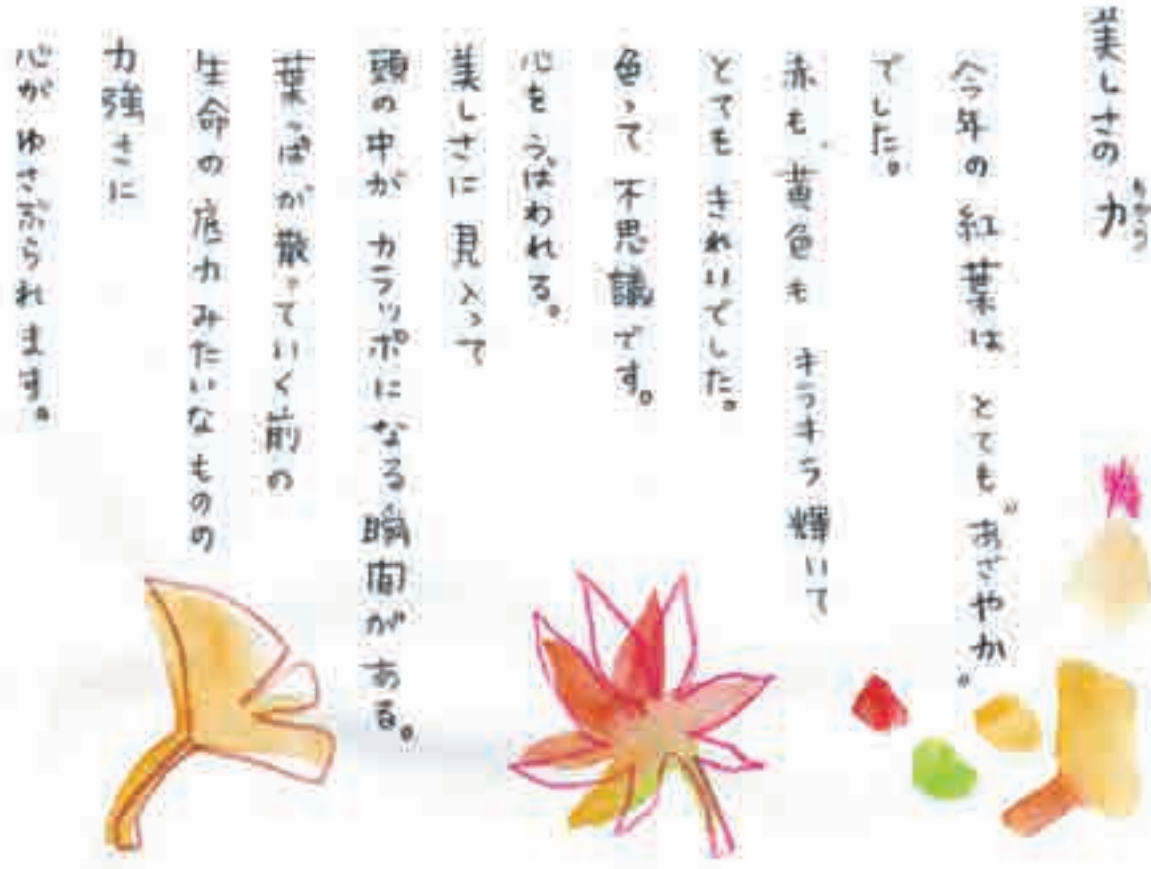 美しさの力
ちから
今年の紅葉は とても"あざやか"
でした。
赤も 黄色も キラキラ 輝いて
とても きれいでした。
色って 不思議です。
心を うばわれる。
美しさに 見入って
頭の中が カラッポになる 瞬間が ある。
葉っぱが 散っていく前の
生命の 底力 みたいな ものの
力強さに
心が ゆさぶられます。